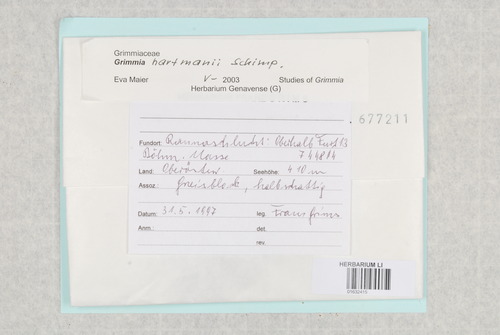 Grimmiaceae
Grimmia hartmanii Schimp.
Eva Maier V- 2003 Studies of Grimmia
Herbarium Genavense (G)
677211
Fundort: Rannaschlucht: Oberhalb
Böhm. Masse
Land: Oberöstr. Seehöhe: 410 m
Assoz.: Gneisblock, halbschattig
Datum: 31.5.1997 leg.
Anm.: det.
rev.
HERBARIUM LI